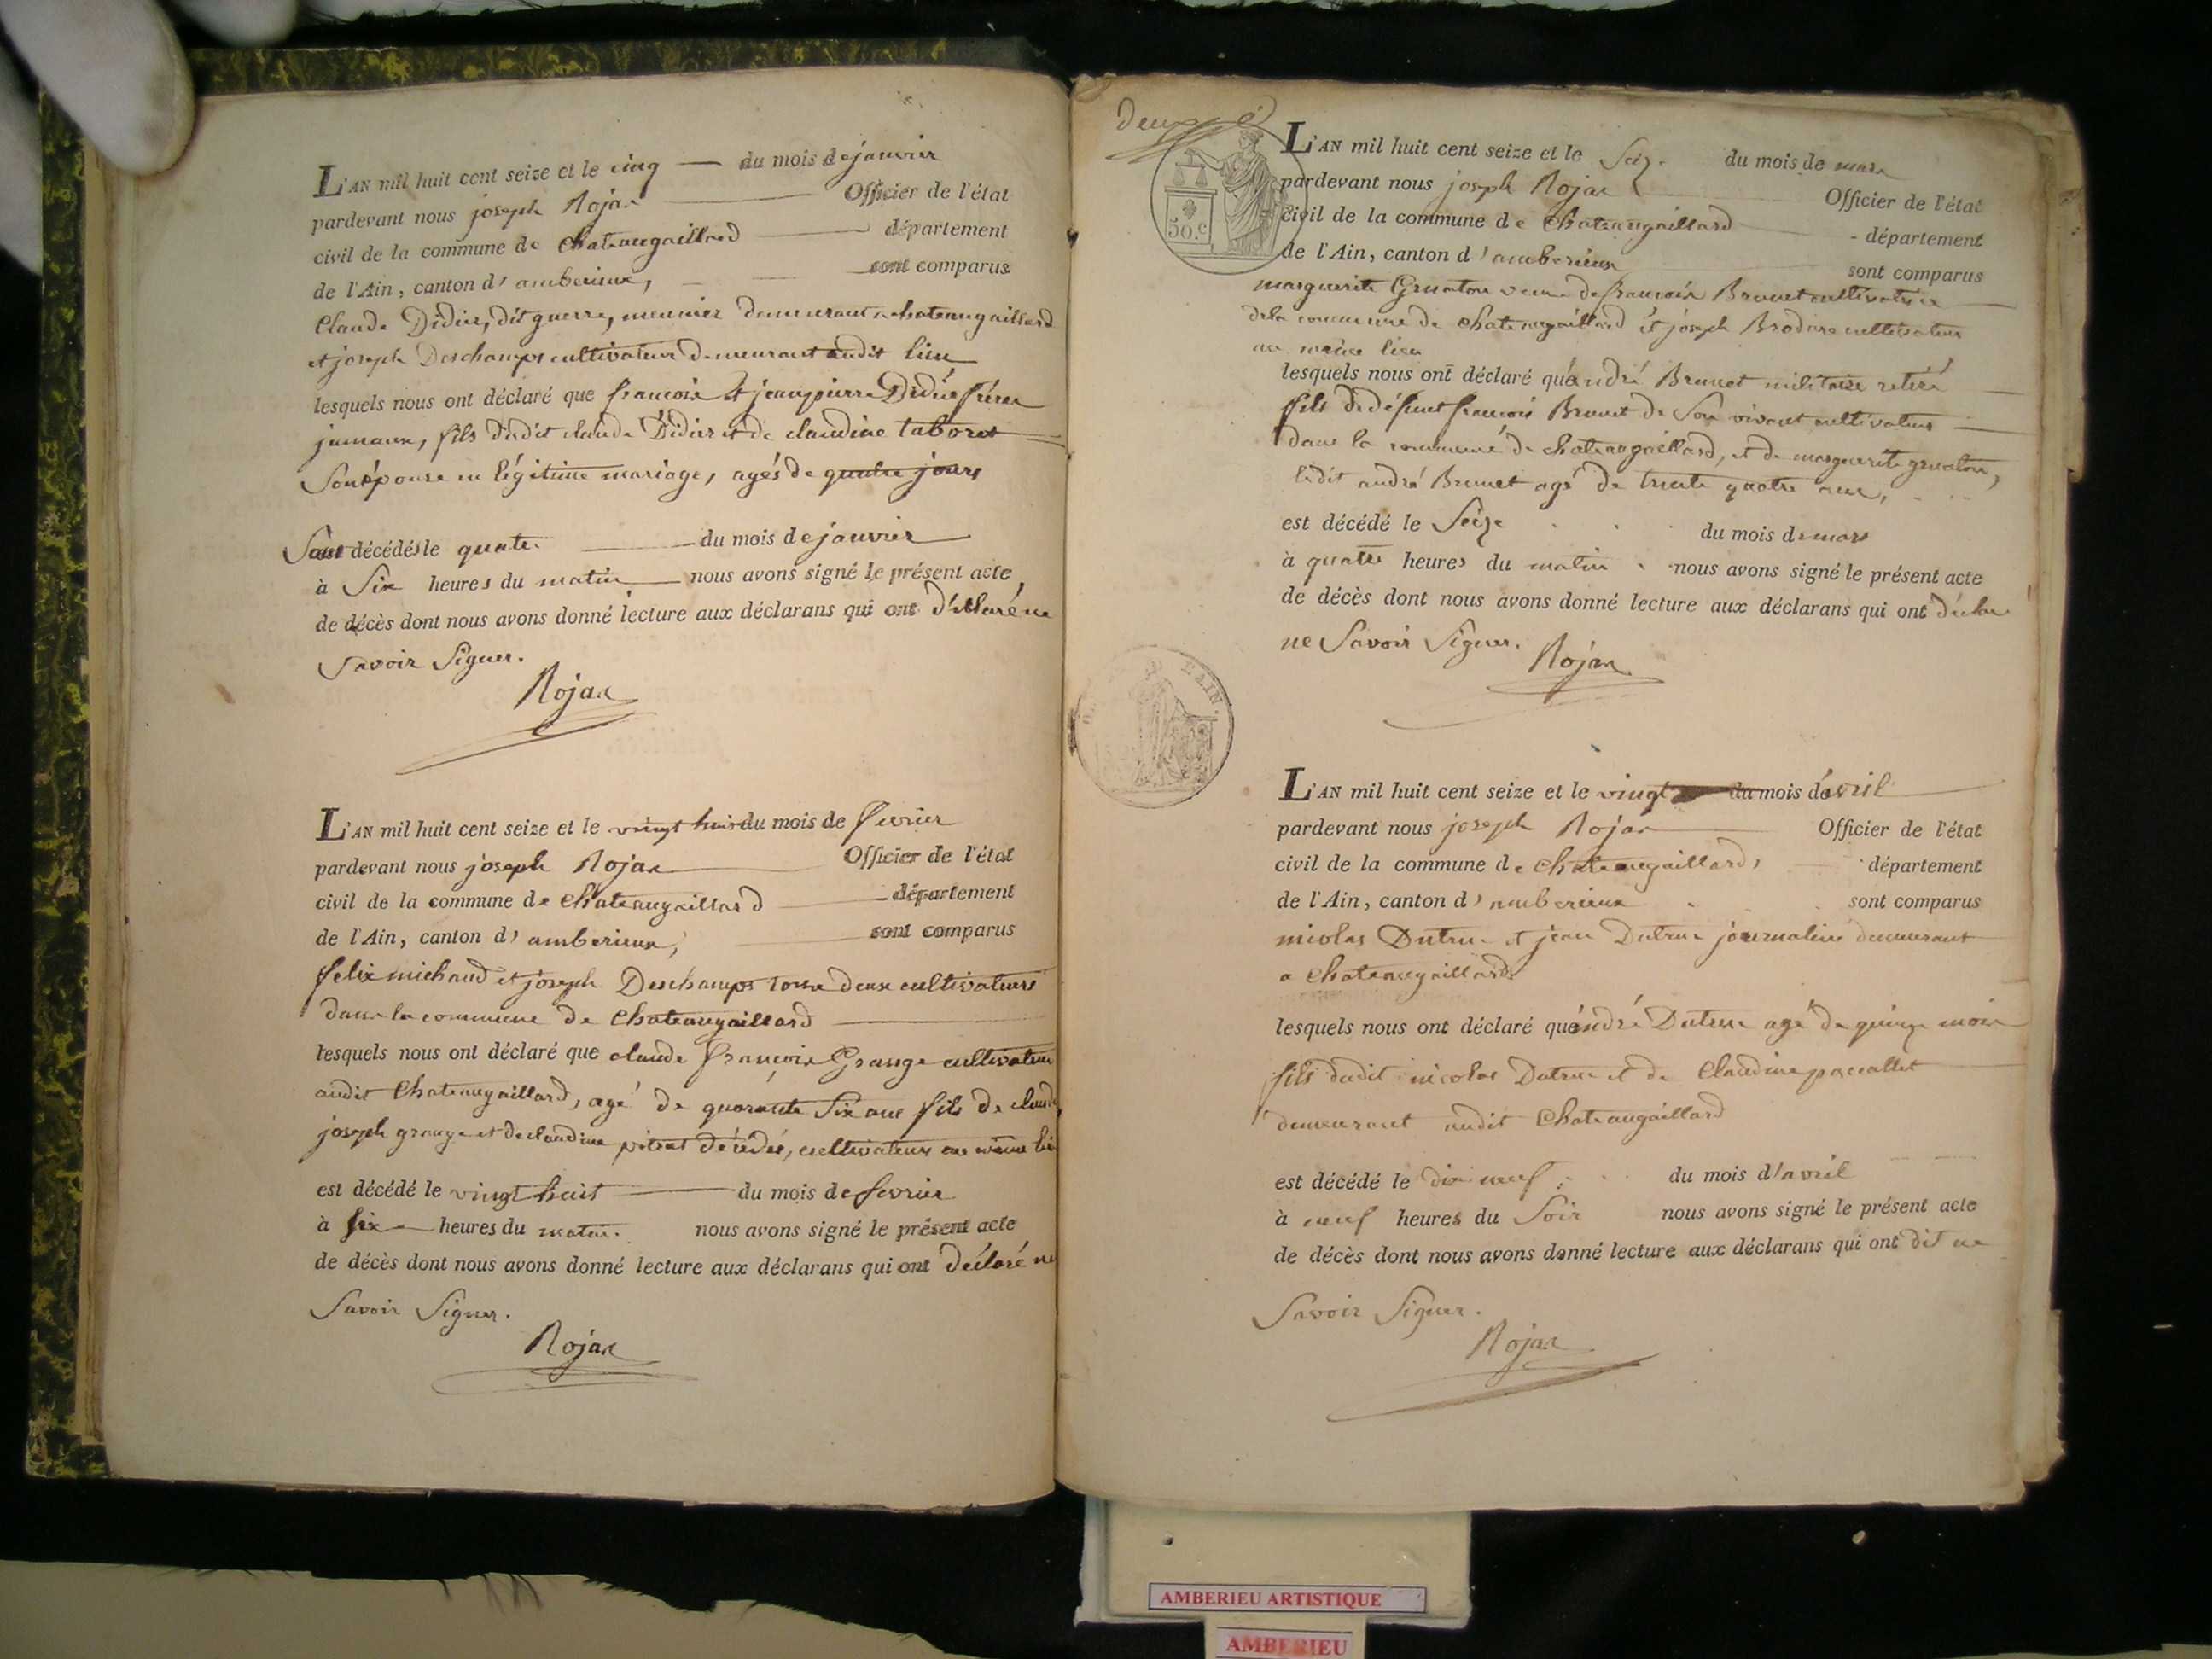 L'AN mil huit cent seize et le cinq du mois de janvier
pardevant nous joseph Rojan Officier de l'état
civil de la commune de Chateaugaillard département
de l'Ain, canton d'amberieux, sont comparus
Claude Didier, dit guerre, meunier demeurant a chateaugaillard
et joseph Deschamps cultivateur demeurant audit lieu
lesquels nous ont déclaré que francois et jeanpierre Didier frères
jumeaux, fils dudit claude Didier et de claudine taboret
Son épouse en légitime mariage, agés de quatre jours
Sont décédés le quatre du mois de janvier
à Six heures du matin nous avons signé le présent acte
de décès dont nous avons donné lecture aux déclarans qui ont déclaré ne
Savoir Signer.
Rojan
L'AN mil huit cent seize et le vingt huit du mois de fevrier
pardevant nous joseph Rojan Officier de l'état
civil de la commune de Chateaugaillard département
de l'Ain, canton d'amberieux, sont comparus
felix michaud et joseph Deschamps tous deux cultivateurs
dans la commune de Chateaugaillard
lesquels nous ont déclaré que claude françois Grange cultivateur
audit Chateaugaillard, agé de quarante Six ans fils de claude
joseph grange et de claudine décédés, cultivateurs au même lieu
est décédé le vingt huit du mois de fevrier
à Six heures du matin. nous avons signé le présent acte
de décès dont nous avons donné lecture aux déclarans qui ont déclaré ne
Savoir Signer.
Rojan
deux
50.c
L'AN mil huit cent seize et le Seize du mois de mars
pardevant nous joseph Rojan Officier de l'état
civil de la commune de Chateaugaillard département
de l'Ain, canton d'amberieux sont comparus
marguerite Gruaton veuve de francois Brunet cultivatrice
dela commune de chateaugaillard et joseph Brodure cultivateur
au même lieu
lesquels nous ont déclaré qu'andré Brunet militaire retiré
fils de défunt francois Brunet de Son vivant cultivateur
dans la commune de chateaugaillard, et de marguerite gruaton,
ledit andré Brunet agé de trente quatre ans,
est décédé le Seize du mois de mars
à quatre heures du matin nous avons signé le présent acte
de décès dont nous avons donné lecture aux déclarans qui ont déclaré
ne Savoir Signer.
Rojan
L'AN mil huit cent seize et le vingt du mois d'avril
pardevant nous joseph Rojan Officier de l'état
civil de la commune de Chateaugaillard, département
de l'Ain, canton d'amberieux sont comparus
nicolas Dutruc et jean Dutruc journaliers demeurant
a Chateaugaillard
lesquels nous ont déclaré qu'andré Dutruc agé de quinze mois
fils dudit nicolas Dutruc et de Claudine pacallet
demeurant audit Chateaugaillard
est décédé le dix neuf du mois d'avril
à neuf heures du Soir nous avons signé le présent acte
de décès dont nous avons donné lecture aux déclarans qui ont dit ne
Savoir Signer.
Rojan
AMBERIEU ARTISTIQUE
AMBERIEU